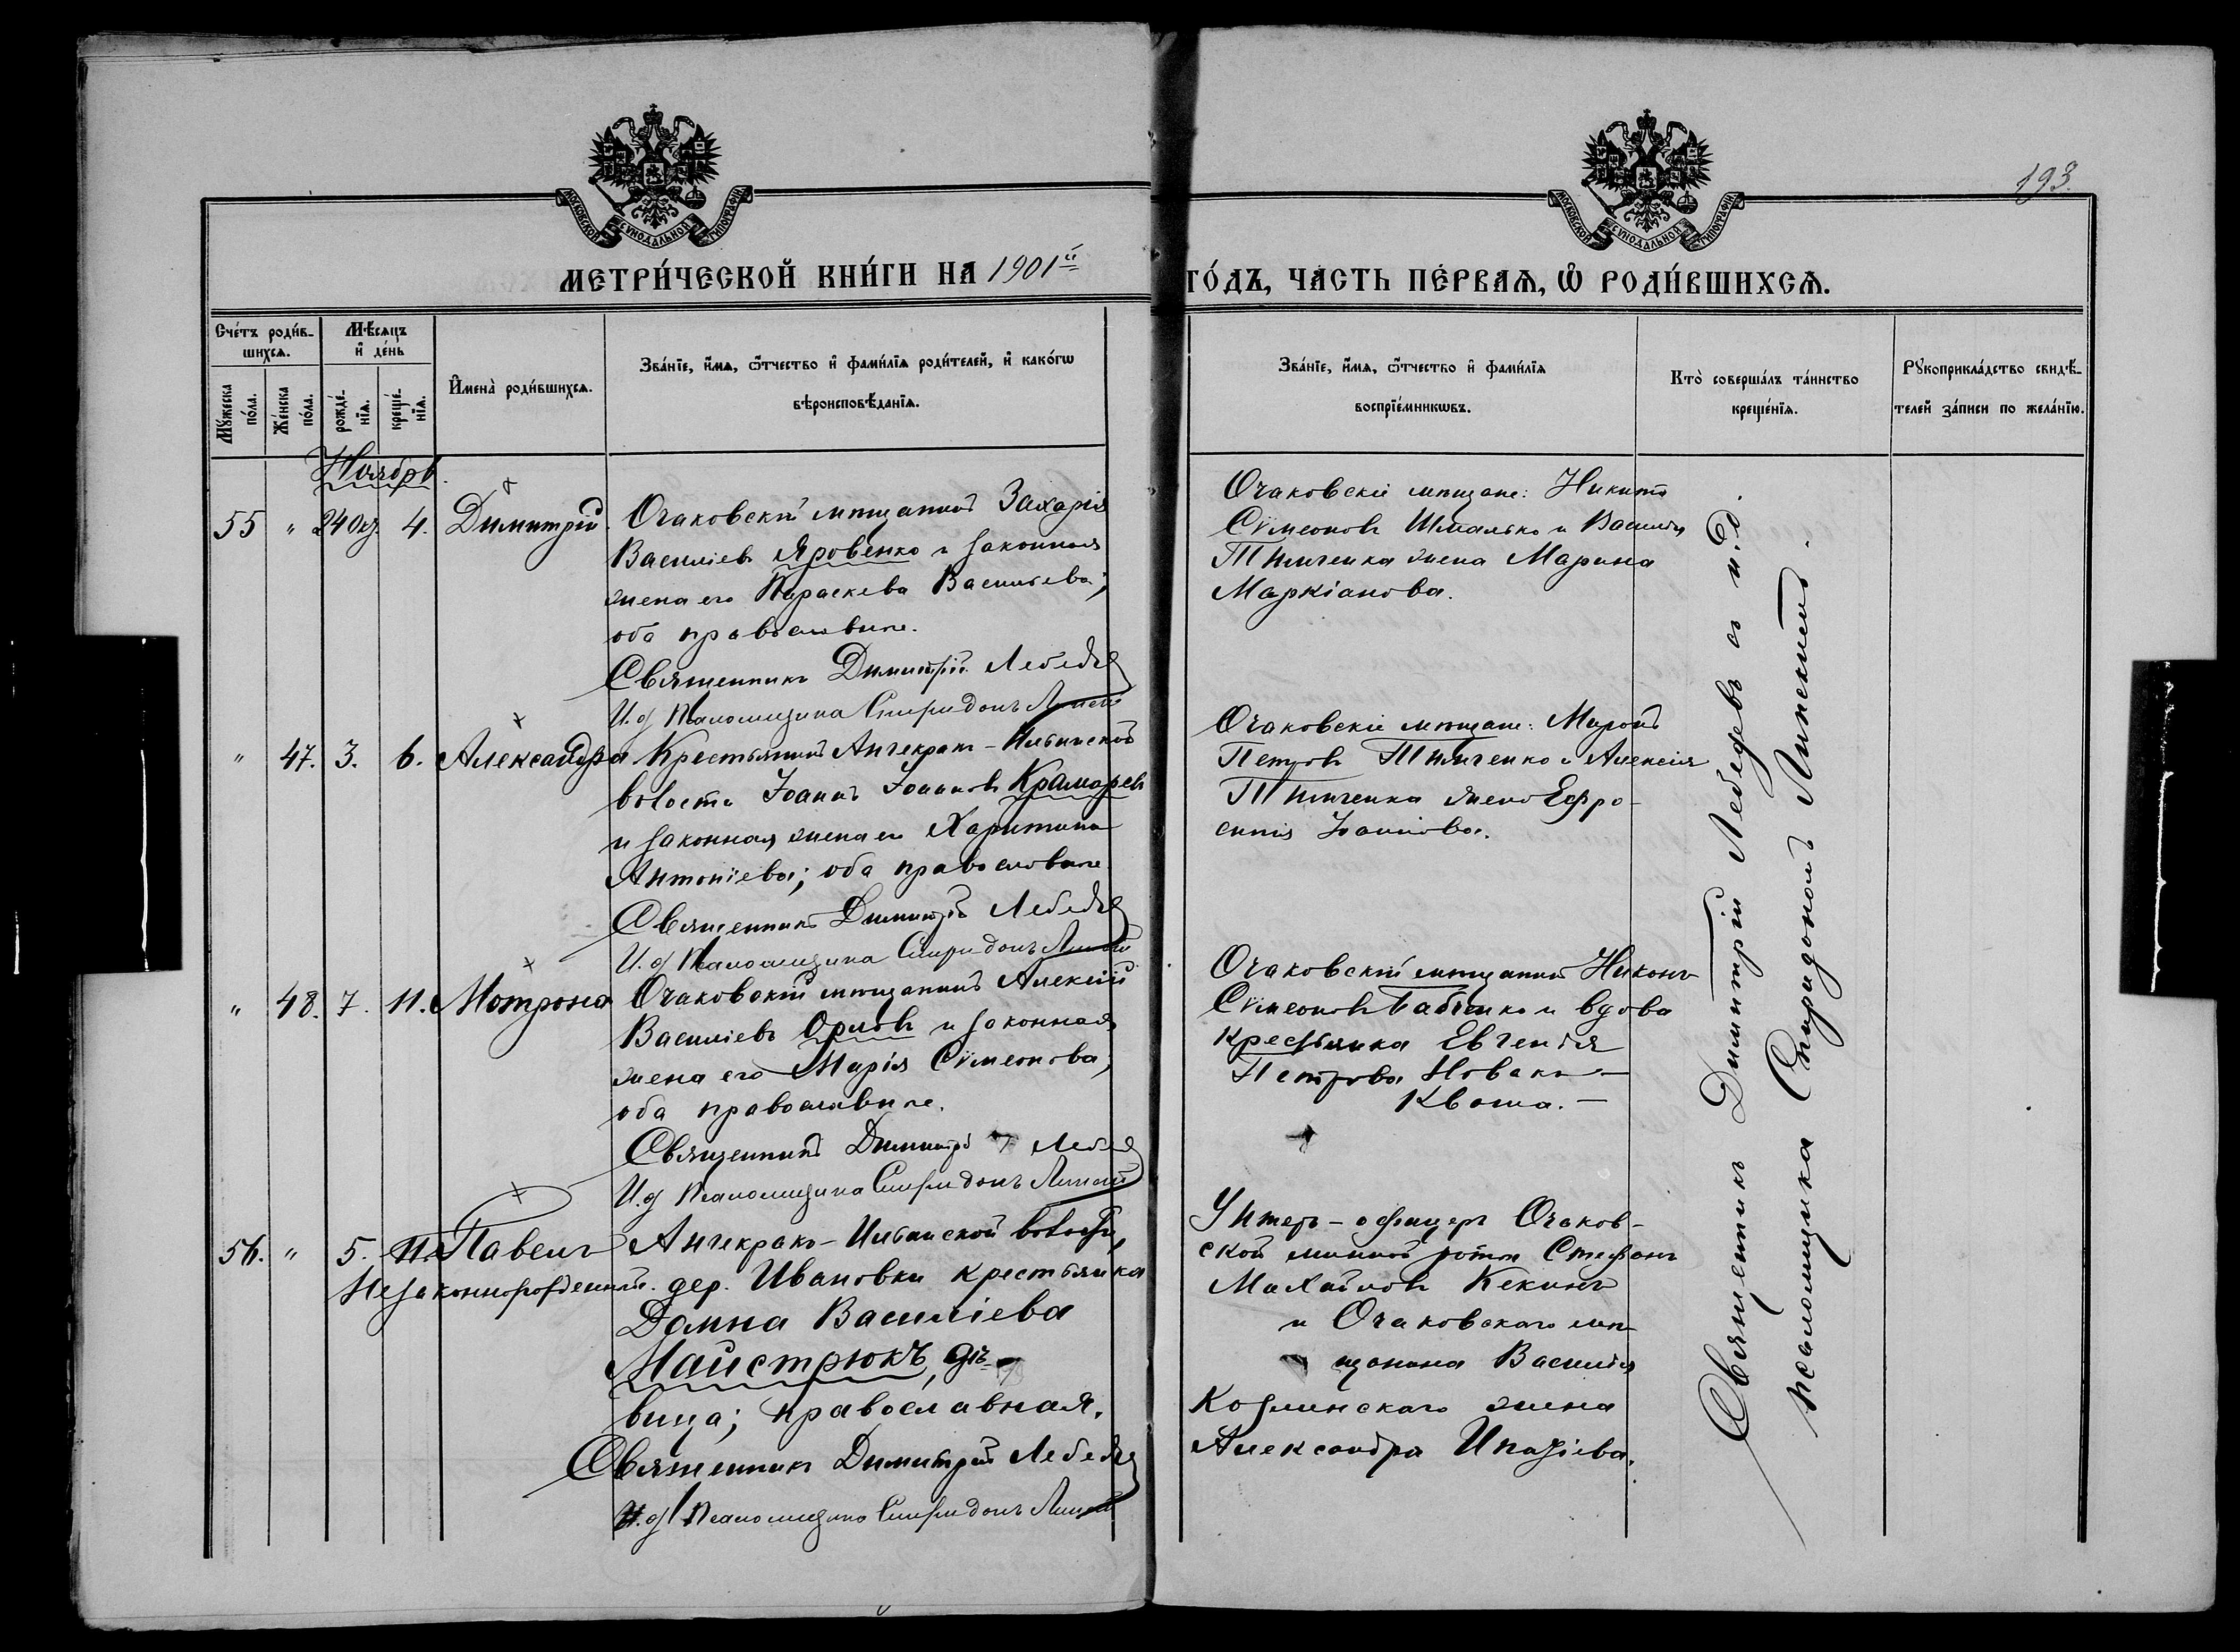 193.
МОСКОВСКОЙ СУНОДАЛЬНОЙ ТИПОГРАФІИ
МОСКОВСКОЙ СУНОДАЛЬНОЙ ТИПОГРАФІИ
МЕТРИ́ЧЕСКОЙ КНИ́ГИ НА 1901й
ГО́ДЪ, ЧАСТЬ ПЕ́РВАѦ, Ѡ҆ РОДИ́ВШИХСѦ.
Сче́тъ роди́в-
шихсѧ.
Мꙋжеска
по́ла.
Же́нска
по́ла.
Мѣ́сѧцъ
и҆ де́нь
рожде́-
нїѧ.
креще́-
нїѧ.
И҆мена̀ роди́вшихсѧ.
Зва́нїе, и҆́мѧ, ѻ҆́тчество и҆ фами́лїѧ роди́телей, и҆ како́гѡ
вѣроисповѣ́данїѧ.
Зва́нїе, и҆́мѧ, ѻ҆́тчество и҆ фами́лїѧ
воспрїе́мникѡвъ.
Кто̀ соверша́лъ та́инство
креще́нїѧ.
Рꙋкоприкла́дство свидѣ́-
телей за́писи по жела́нїю.
Ноябрь.
55 " 24 Окт. 4. Димитрій
Очаковскій мѣщанинъ Захарія
Василіевъ Яровенко и законная
жена его Параскева Васильева;
оба православные.
Священникъ Димитрій Лебедевъ
И. д. Псаломщика Спиридонъ
Очаковскіе мѣщане: Никита
Сѵмеоновъ Шмалько и Василія
Тимченка жена Марина
Маркіанова.
" 47. 3. 6. Александра
Крестьянинъ Анчекрако-Ильинской
волости Іоаннъ Іоанновъ Крамарев
и законная жена его Харитина
Антоніева; оба православные.
Священникъ Димитрій Лебедевъ
И. д. Псаломщика Спиридонъ
Очаковскіе мѣщане: Миронъ
Петровъ Тимченко и Алексія
Тимченка жена Евфро-
синія Іоаннова.
" 48. 7. 11. Мотрона
Очаковскій мѣщанинъ Алексій
Василіевъ Орловъ и законная
жена его Марія Сѵмеонова;
оба православные.
Священникъ Димитрій Лебедевъ
И. д. Псаломщика Спиридонъ
Очаковскій мѣщанинъ Никонъ
Сѵмеоновъ Бабченко и вдова
крестьянка Евгенія
Петрова Новако-
Кваша.
56. " 5. 11. Павелъ
Незаконнорожденный.
Анчекрако-Ильинской волости,
дер. Ивановки крестьянка
Домна Василіева
Майстрюкъ, дѣ-
вица; православная.
Священникъ Димитрій Лебедевъ
И. д. Псаломщика Спиридонъ
Унтеръ-офицеръ Очаков-
ской минной роты Стефанъ
Михайловъ Кекинъ
и Очаковскаго мѣ-
щанина Василія
Козлинскаго жена
Александра Ипатіева.
Священникъ Димитрій Лебедевъ съ и. д.
псаломщика Спиридономъ Липскимъ.